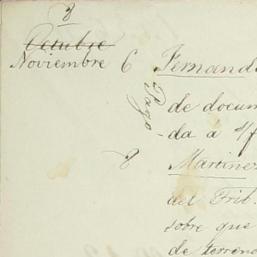 8
Octubre
Noviembre 6 Fernand
Pago
de docum
da á
8 Martinez
del Trib.
sobre que
de terreno